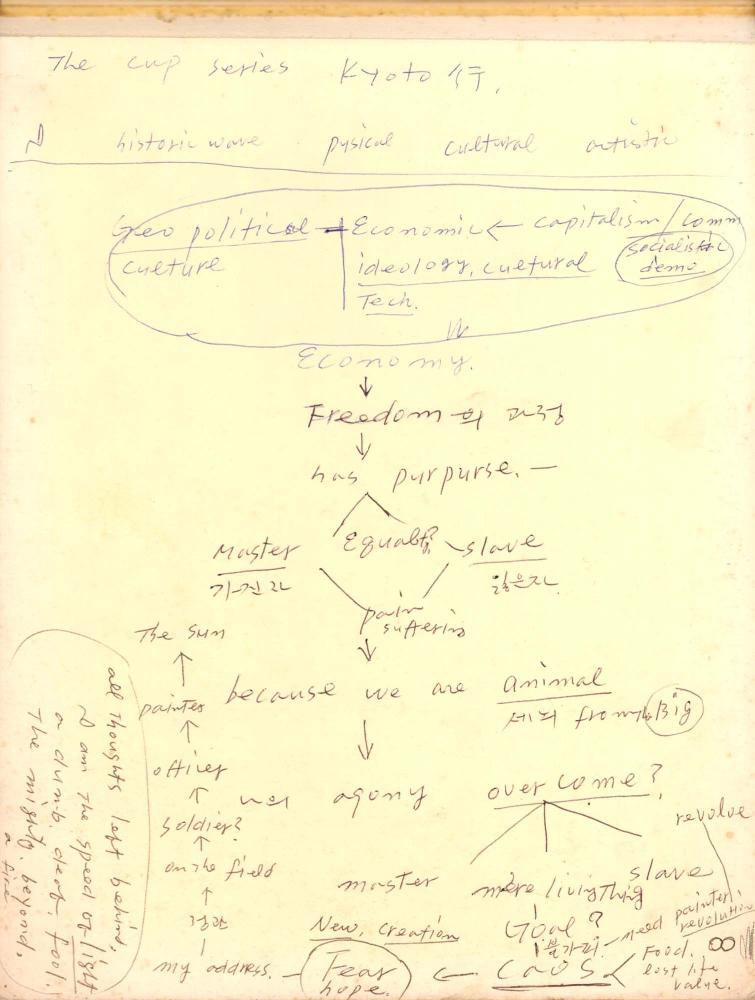 The cup series Kyoto 行.
historic wave pysical cultural artistic
Geo political Economic ← capitalism / comm
culture ideology, cultural socialistic
demo
Tech.
Economy.
↓
Freedom 의 과정
↓
has purpurse. —
Master Equal? slave
가진자 잃은자
pain
suffering
The Sun
↑ ↓
painter because we are animal
from Big
↑ ↓
officer
agony over come?
↑
soldier? revolve
↑
on the field
master mere living thing slave
↑
New, Creation Goal?
불가피 — need painter
revolution
my address. — Fear ← CaoS < Food. ∞
hope. lost life
value.
all thoughts left behind,
I am the speed of light
a dumb, deaf, fool.
The mighty, beyond.
a fire